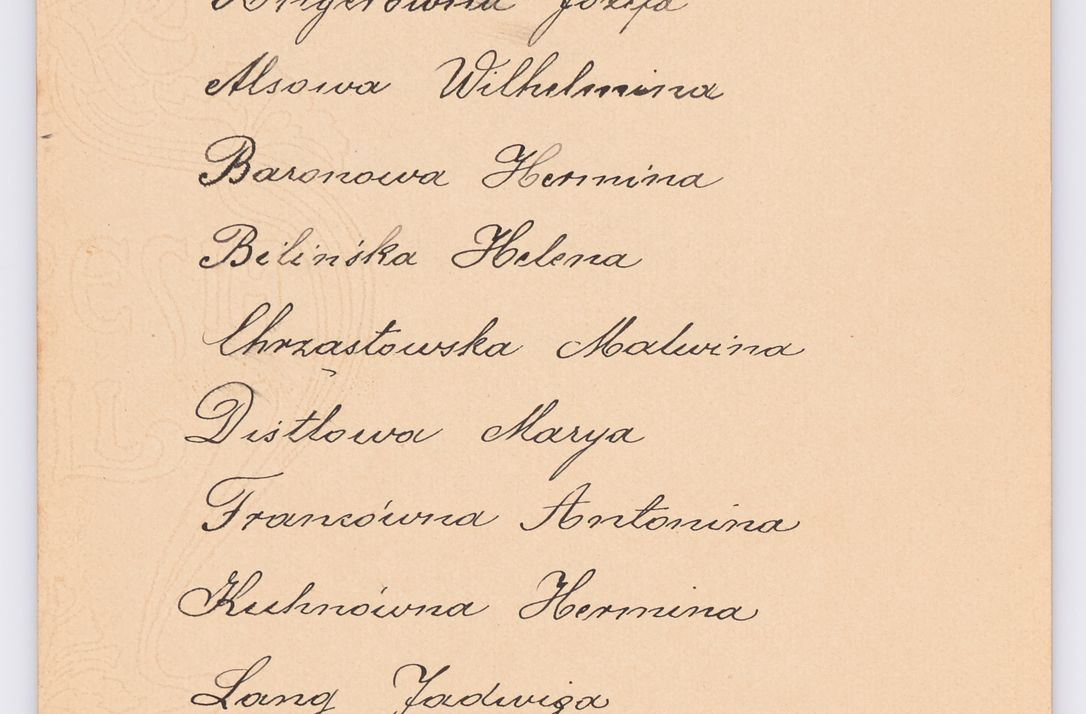 Józefa
Alsowa Wilhelmina
Baronowa Hermina
Bilińska Helena
Chrząstowska Malwina
Distlowa Marya
Francówna Antonina
Kuhnówna Hermina
Lang Jadwiga